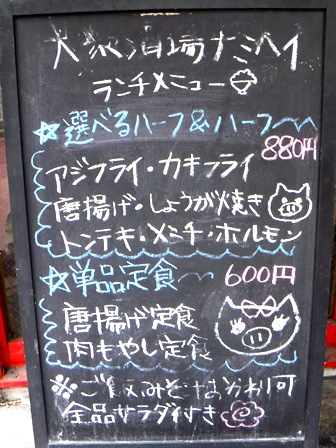 大衆酒場ナミヘイ
ランチメニュー
☆選べるハーフ&ハーフ
880円
アジフライ・カキフライ
唐揚げ・しょうが焼き
トンテキ・メンチ・ホルモン
☆単品定食 600円
唐揚げ定食
肉もやし定食
※ご飯みそ汁おかわり可
全品サラダ付き